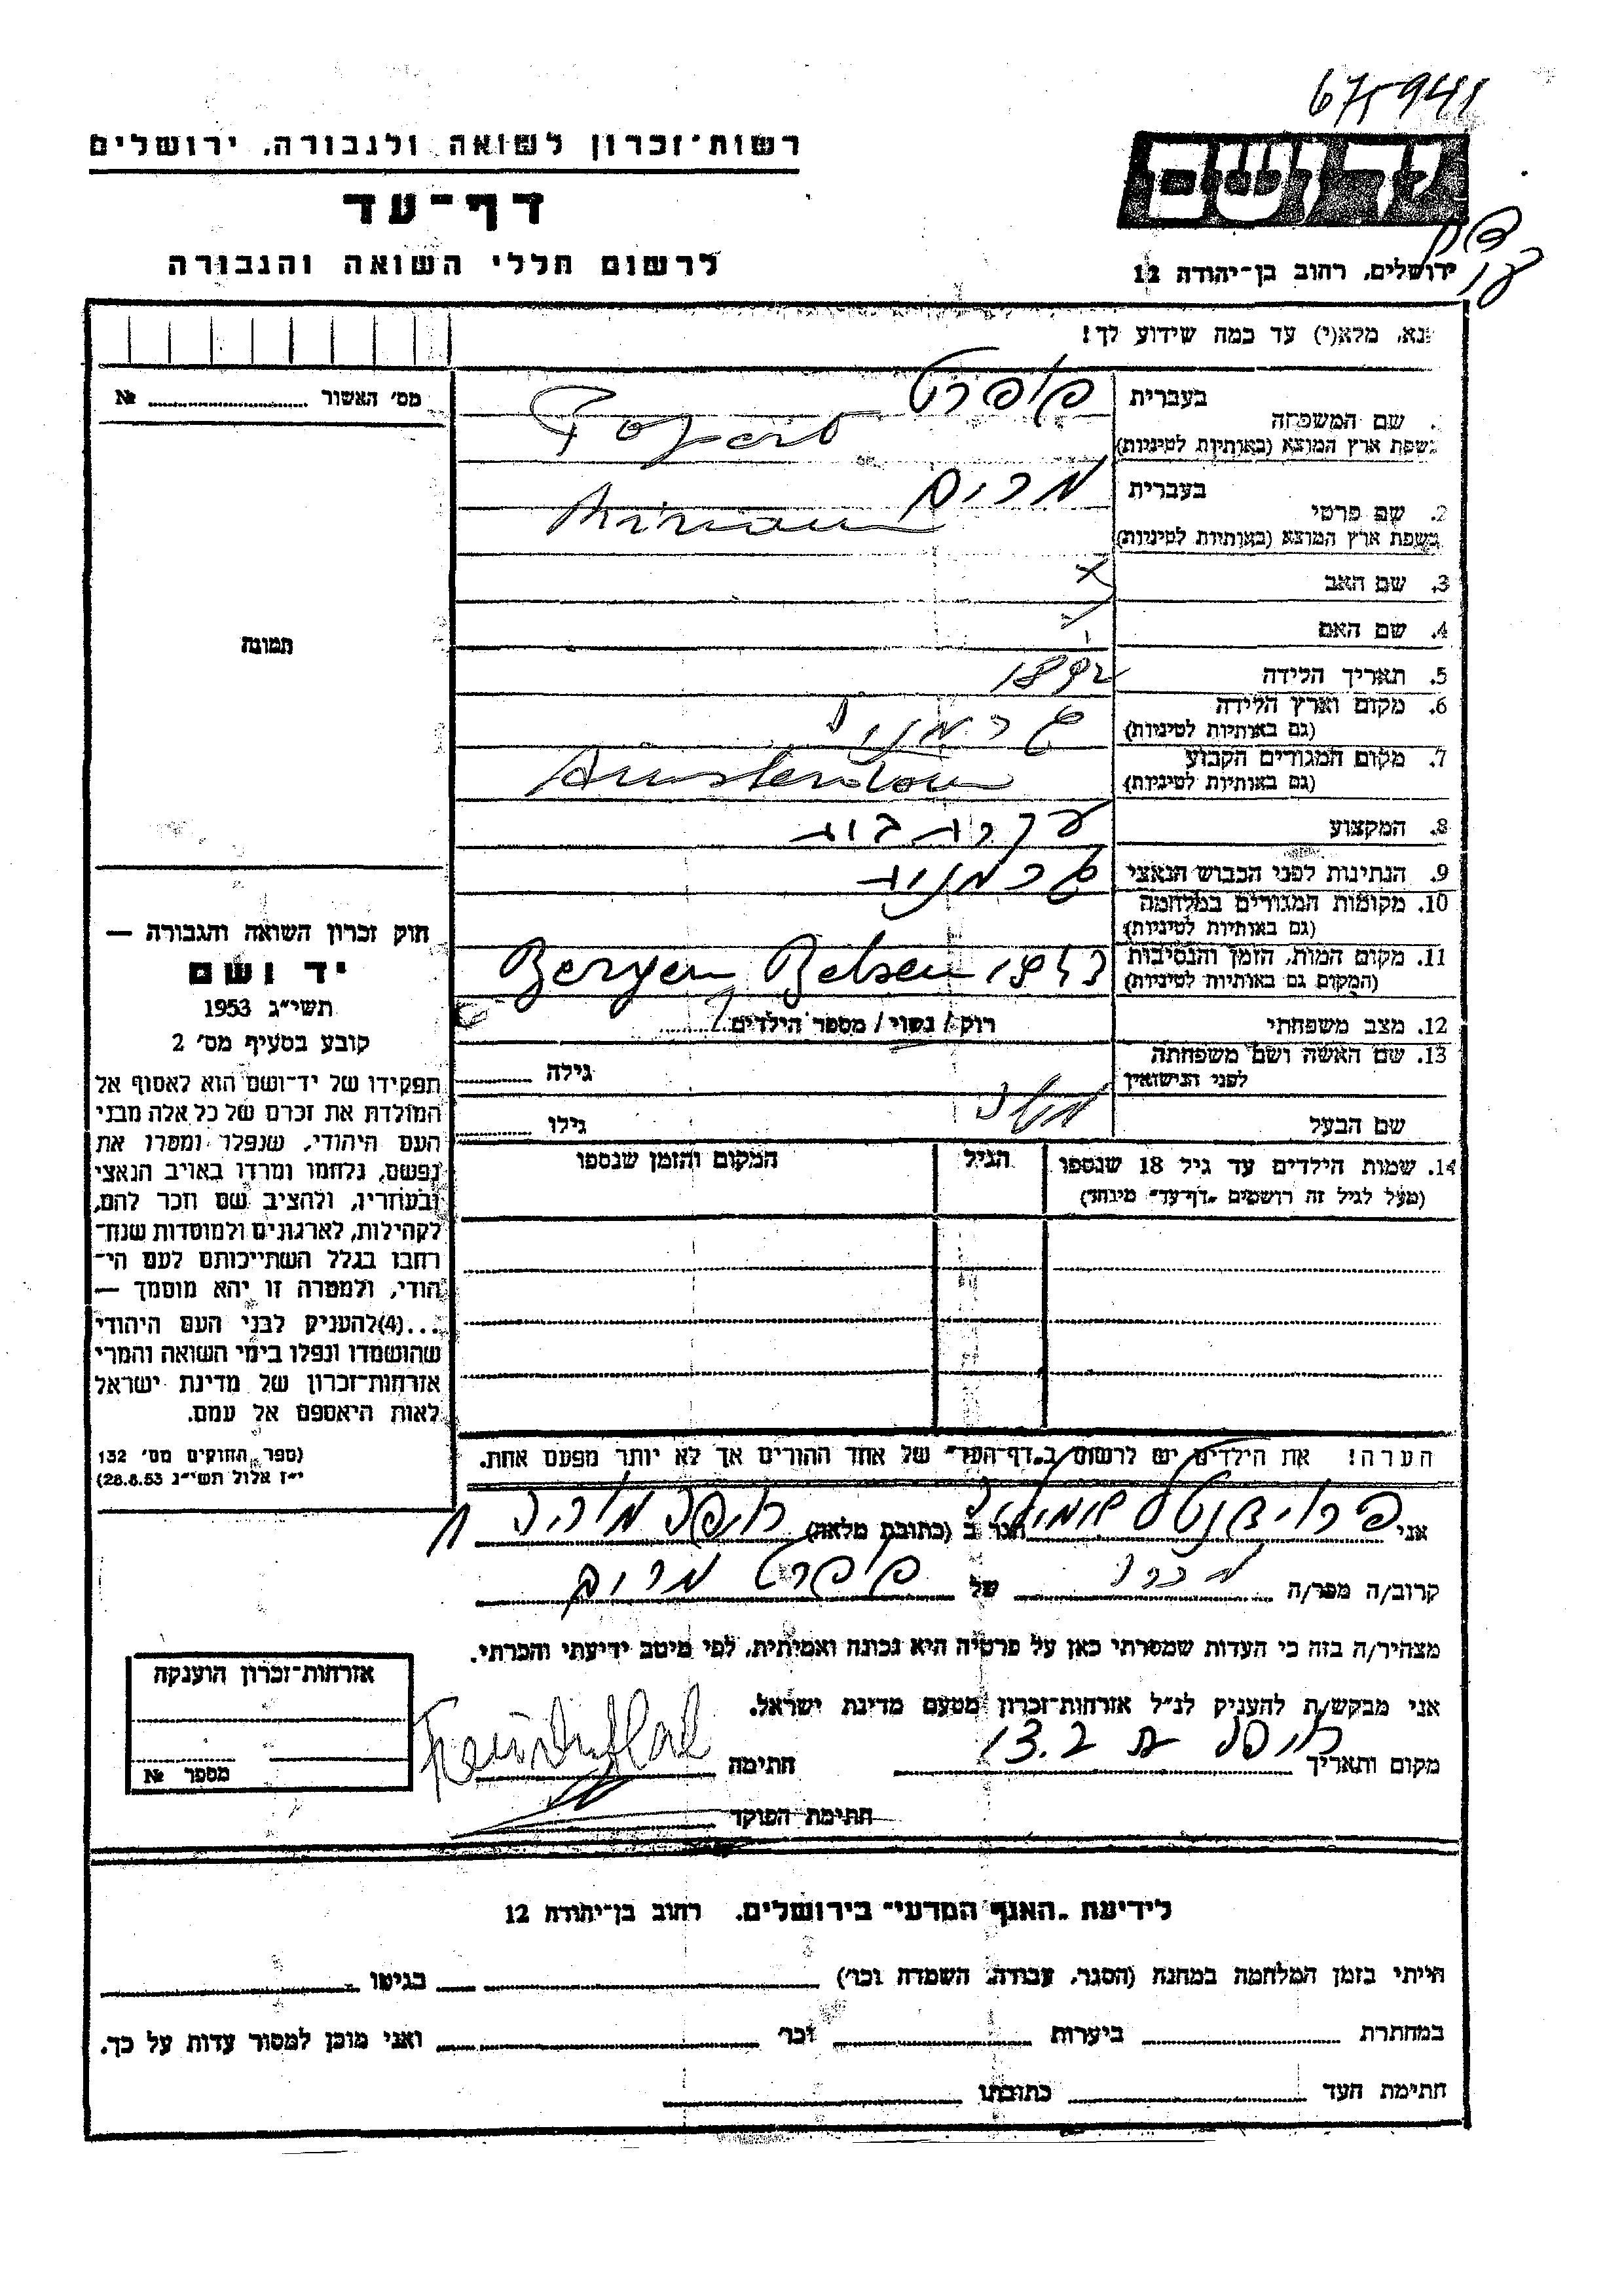 675941
רשות־זכרון לשואה ולגבורה, ירושלים
יד ושם
דף־עד
לרשום חללי השואה והגבורה
ירושלים, רחוב בן־יהודה 12
נא, מלא(י) עד כמה שידוע לך!
מס׳ האשור № 
שם המשפחה
בעברית פופרט
בשפת ארץ המוצא (באותיות לטיניות) Popert
2. שם פרטי
בעברית מרים
בשפת ארץ המוצא (באותיות לטיניות) Miriam
3. שם האב
4. שם האם
5. תאריך הלידה 1892
6. מקום וארץ הלידה
(גם באותיות לטיניות) גרמניה
7. מקום המגורים הקבוע
(גם באותיות לטיניות) Amsterdam
8. המקצוע עקרת בית
9. הנתינות לפני הכבוש הנאצי גרמניה
10. מקומות המגורים במלחמה
(גם באותיות לטיניות)
11. מקום המות, הזמן והנסיבות
(המקום גם באותיות לטיניות) Bergen Belsen 1943
12. מצב משפחתי רוק / נשוי / מספר הילדים
13. שם האשה ושם משפחתה
לפני הנישואין
גילה
שם הבעל
גילו
14. שמות הילדים עד גיל 18 שנספו
(מעל לגיל זה רושמים „דף־עד" מיוחד)
הגיל
המקום והזמן שנספו
תמונה
חוק זכרון השואה והגבורה —
יד ושם
תשי״ג 1953
קובע בסעיף מס׳ 2
תפקידו של יד־ושם הוא לאסוף אל
המולדת את זכרם של כל אלה מבני
העם היהודי, שנפלו ומסרו את
נפשם, נלחמו ומרדו באויב הנאצי
ובעוזריו, ולהציב שם וזכר להם,
לקהילות, לארגונים ולמוסדות שנח־
רחבו בגלל השתייכותם לעם הי־
הודי, ולמטרה זו יהא מוסמך —
...(4)להעניק לבני העם היהודי
שהושמדו ונפלו בימי השואה והמרי
אזרחות־זכרון של מדינת ישראל
לאות היאספם אל עמם.
(ספר החוקים מס׳ 132
י״ז אלול תשי״ג 28.8.53)
הערה! את הילדים יש לרשום ב„דף־העד" של אחד ההורים אך לא יותר מפעם אחת.
אני פרוידנטל הגר ב (כתובת מלאה) חיפה
קרוב/ה מכר/ה מכרה של פופרט מרים
מצהיר/ה בזה כי העדות שמסרתי כאן על פרטיה היא נכונה ואמיתית, לפי מיטב ידיעתי והכרתי.
אני מבקש/ת להעניק לנ״ל אזרחות־זכרון מטעם מדינת ישראל.
מקום ותאריך חיפה 13.2 חתימה
חתימת הפוקד
אזרחות־זכרון הוענקה
מספר №
לידיעת „האגף המדעי" בירושלים, רחוב בן־יהודה 12
הייתי בזמן המלחמה במחנה (הסגר, עבודה, השמדה וכו׳) בגיטו
במחתרת ביערות וכו׳ ואני מוכן למסור עדות על כך.
חתימת העד כתובתו